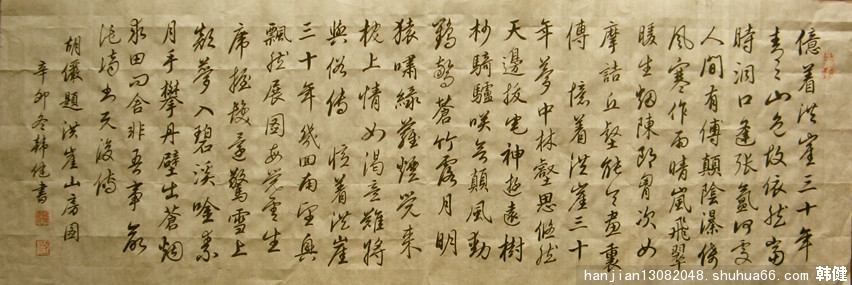 憶着洪崖三十年
青青山色故依然當
時洞口逢張氳何處
人間有傅顛陰瀑倚
風寒作雨晴嵐飛翠
暖生烟陳郎胷次如
摩詰丘壑能令畫裏
傳 憶着洪崖三十
年夢中林壑思悠然
天邊拔宅神超遠樹
杪騎驢咲顛風動
鶴驚蒼竹露月明
猿嘯綠蘿煙覺來
枕上情如渴意雖將
與俗傳 憶着洪崖
三十年幾回南望興
飄然展圖每覺雲生
席握髮還驚雪上
顛夢入碧溪唫素
月手攀丹壁出蒼烟
求田问舍非吾事欲
傳
胡儼題洪崖山房圖
辛卯冬韩健書
hanjian13082048.shuhua66.com 韩健